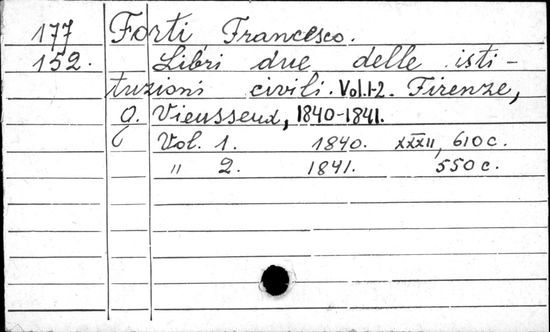 177 Forti Francesco.
152. Libri due delle isti-
tuzioni civili. Vol.1-2. Firenze,
G. Vieusseux, 1840-1841.
Vol. 1. 1840. XXXII, 610 c.
" 2. 1841. 550 c.